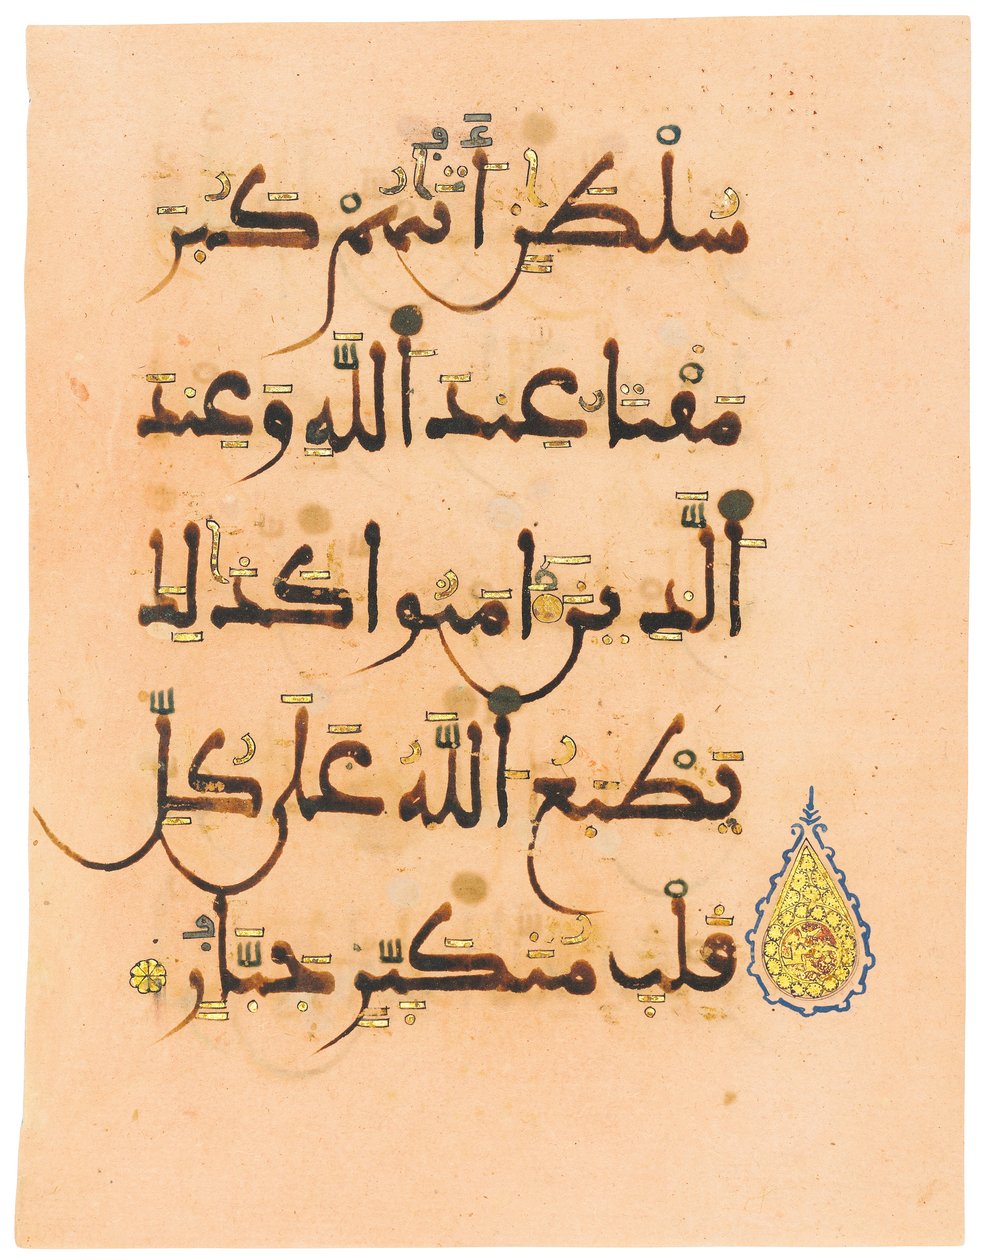 سُلْطَٰنٍ أَتَىٰهُمْ كَبُرَ
مَقْتًا عِندَ اَللَّهِ وَعِندَ
اَلَّذِينَ ءَامَنُواْ كَذَٰلِكَ
يَطْبَعُ اُللَّهُ عَلَىٰ كُلِّ
قَلْبِ مُتَكَبِّرٍ جَبَّارٍ